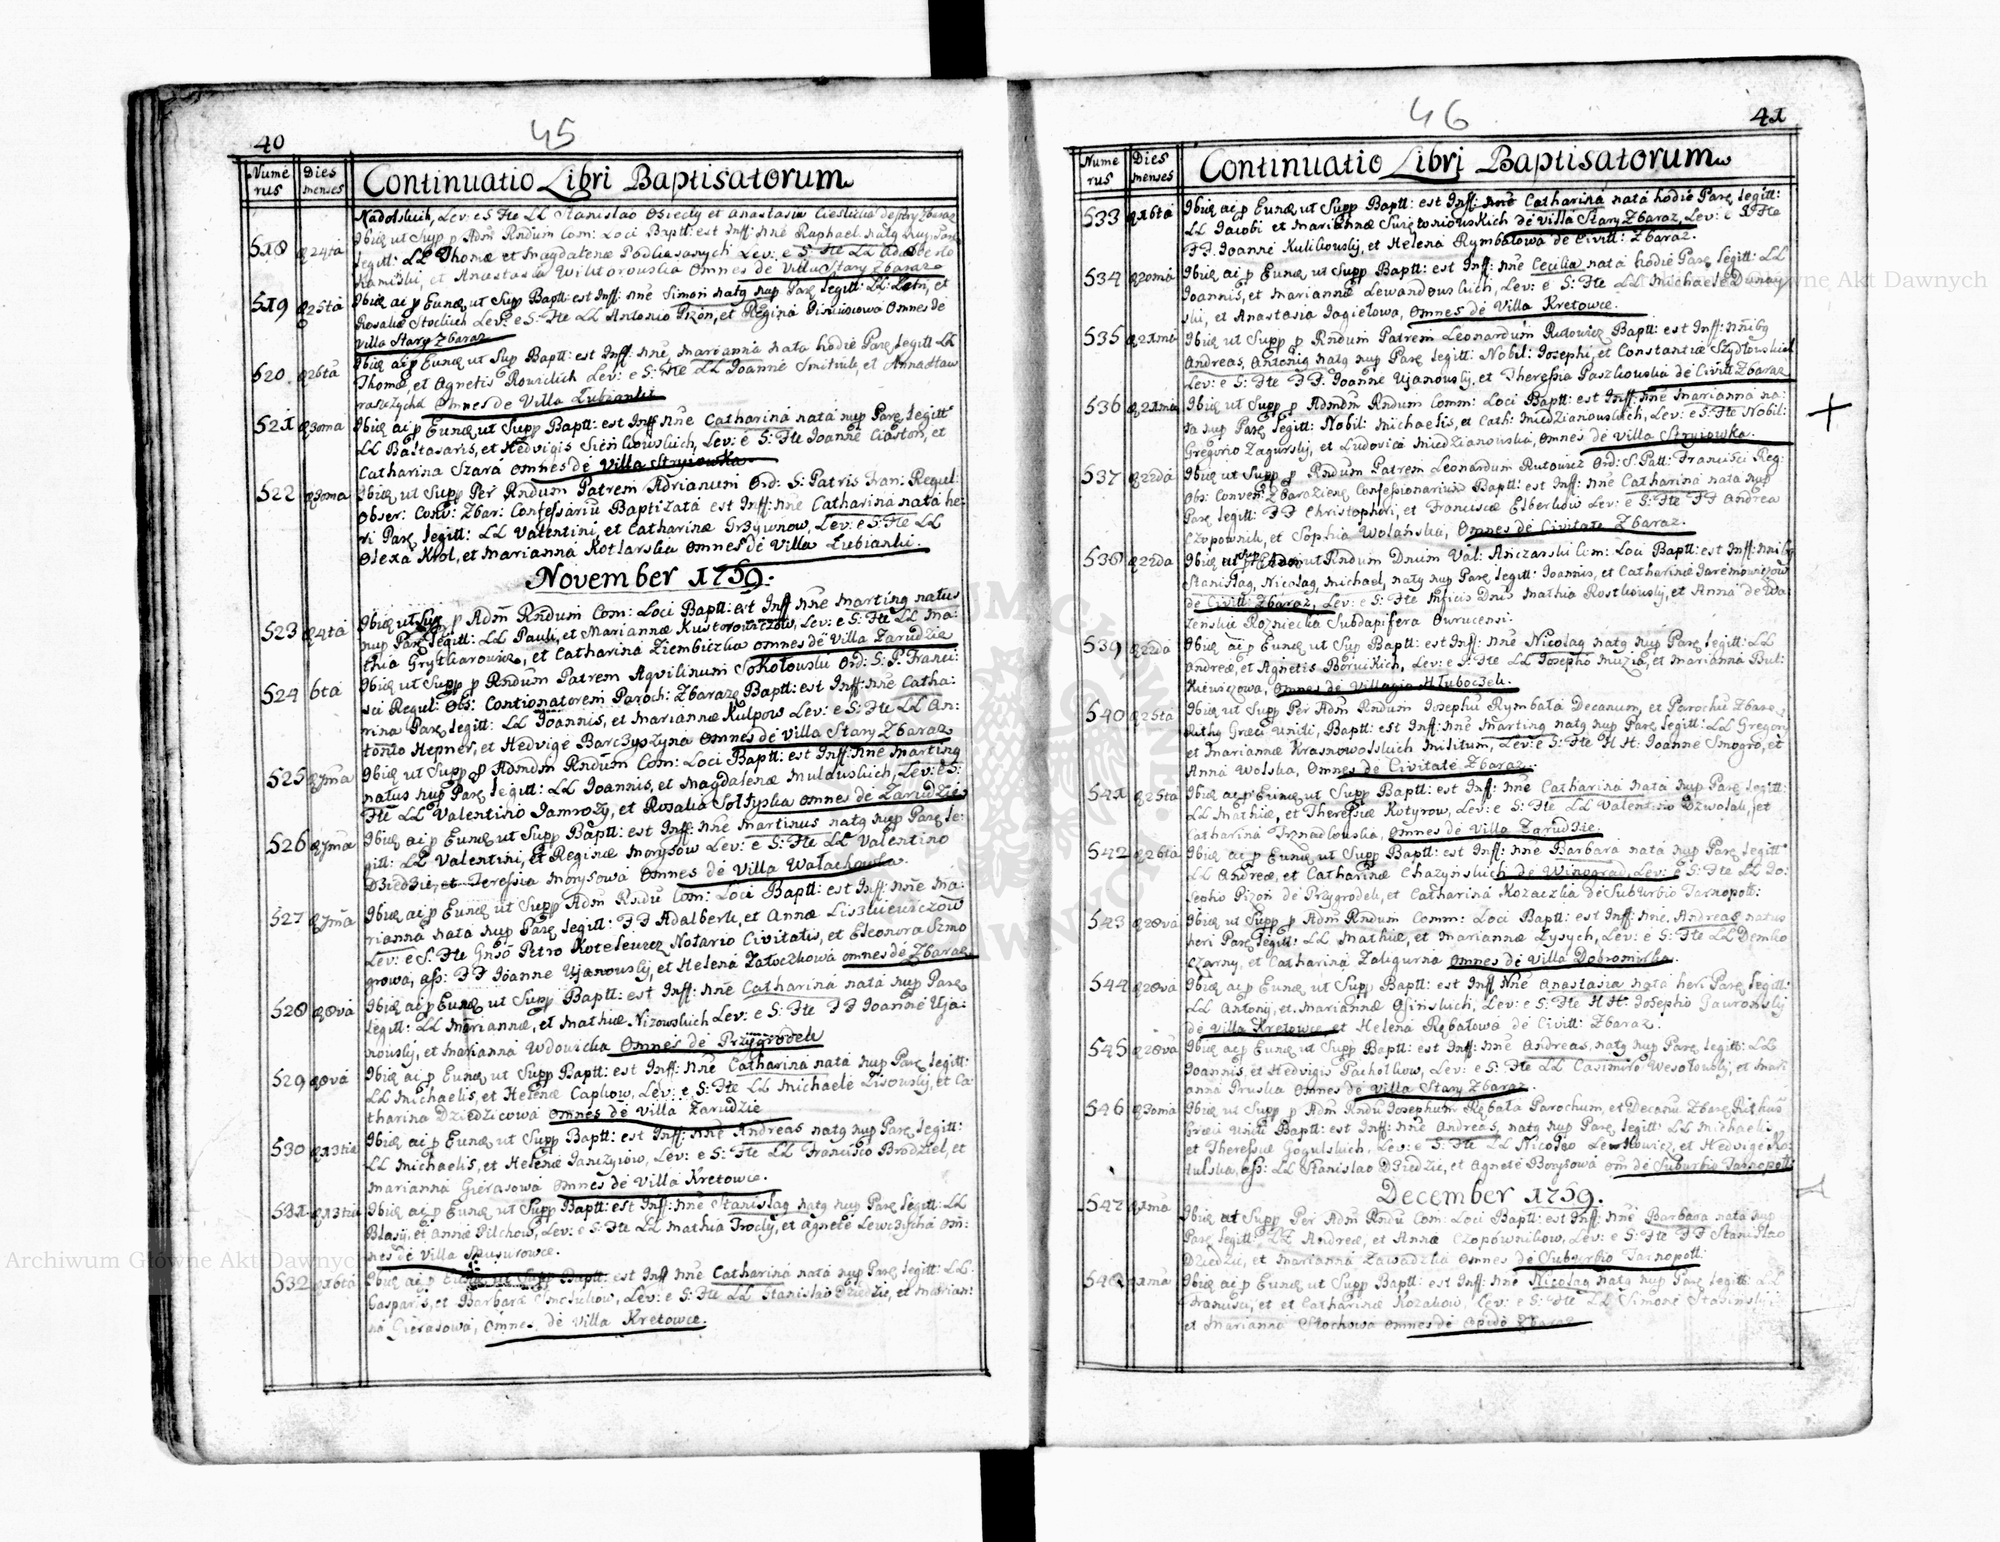 40
45
Nume
rus
Dies
menses
Continuatio Libri Baptisatorum
Nadolskich, Lev: e S: Fte LL Stanislao Osiecly et Anastasia
518 24ta Ibidē ut Supp p Adm Rndum Com: Loci Baptt: est Inff: nñe Raphael natq nup Parę
legitt: LL Thomæ et Magdalenæ Podliasanych Lev: e S: Fte LL
et Anastasia Wiktorouska Omnes de Villa Stary Zbaraz
519 25ta Ibidē ac p Eundę ut Supp Baptt: est Inff: nñe Simon natq nup Parę legitt: LL et
Rosaliæ Lev: e S: Fte LL Antonio Pizon, et Regina Omnes de
Villa Stary Zbaraz
520 26ta Ibidē ac p Eundę ut Sup Baptt: est Inff: nñe, Marianna nata hodie Parę legitt LL
Thomæ, et Agnetis Lev: e S: Fte LL Joanne et Anna
Omnes de Villa Lubianki
521 30ma Ibidē ac p Eundę ut Supp Baptt: est Inff nñe Catharina nata nup Parę legitt:
LL Baltasaris, et Hedvigis Sieńkouskich, Lev: e S: Fte Joanne Ciaston, et
Catharina Szara Omnes de Villa Stryiowka
522 30ma Ibidē ut Supp Per Rndum Patrem Adrianum Ord: S: Patris Fran: Regul:
Obser: Conv: Zbar: Confessariū Baptizata est Inff: nñe Catharina nata he-
ri Parę legitt: LL Valentini, et Catharinæ Grzywnow, Lev: e S: Fte LL
Olexa Krol, et Marianna Kotlarska Omnes de Villa Lubianki.
November 1759.
523 4ta Ibidē ut Sup p Adm Rndum Com: Loci Baptt: est Inff nñe Martinq natus
nup Parę legitt: LL Pauli, et Mariannæ Kustorowiczow, Lev: e S: Fte LL Ma:
thia Grytliarowicz, et Catharina Ziembiczka Omnes de Villa Zarudzie
524 6ta Ibidē ut Supp p Rndum Patrem Aqvilinum Sokołouski Ord: S: P. Franci:
sci Regul: Obs: Contionatorem Paroch: Zbarazę Baptt: est Inff: nñe Catha:
rina Parę legitt: LL Joannis, et Mariannæ Kulpow Lev: e S: Fte LL An:
tonio Hepner, et Hedvige Barczyszyna Omnes de Villa Stary Zbaraz
525 7ma Ibidē ut Supp p Admdm Rndum Com: Loci Baptt: est Inff: nñe Martinq
natus nup Parę legitt: LL Joannis, et Magdalenæ Mulauskich, Lev: e S:
Fte LL Valentino Jamrozy, et Rosalia Soltyska Omnes de Zarudzie
526 7ma Ibidē ac p Eundę ut Supp Baptt: est Inff: nñe Martinus natq nup Parę le:
gitt: LL Valentini, et Reginæ Morysow Lev: e S: Fte LL Valentino
Dziedzic, et Teressia Morysowa Omnes de Villa Wałachowka.
527 7ma Ibidē ac p Eundę ut Supp Adm Rndū Com: Loci Baptt: est Inff: nñe Ma:
rianna nata nup Parę legitt: FF Adalberti, et Annæ
Lev: e S: Fte Petro Koteleurez Notario Civitatis, et Eleonora Szmo
growa, ass: FF Joanne Ujanousky, et Helena Załoczkowa Omnes de Zbaraz
528 8va Ibidē ac p Eundę ut Supp Baptt: est Inff: nñe Catharina nata nup Parę
legitt: LL Mariannæ, et Mathiæ Nizowskich Lev: e S: Fte FF Joanne Uja:
nousky, et Marianna Wdowicka Omnes de Przygrodek
529 8va Ibidē ac p Eundę ut Supp Baptt: est Inff: nñe Catharina nata nup Parę legitt:
LL Michaelis, et Helenæ Capkow, Lev: e S: Fte LL Michaele Lisousky, et Ca:
tharina Dziedzicowa Omnes de Villa Zarudzie
530 13tia Ibidē ac p Eundę ut Supp Baptt: est Inff: nñe Andreas natq nup Parę legitt:
LL Michaelis, et Helenæ Janczyiow, Lev: e S: Fte LL Francisco Brodziel, et
Marianna Gierasowa Omnes de Villa Kretowce.
531 13tia Ibidē ac p Eundę ut Supp Baptt: est Inff: nñe Stanislaq natq nup Parę legitt: LL
Blasy, et Annæ Pilchow, Lev: e S: Fte LL Mathia Trocky, et Agnete Om:
nes de Villa
532 16ta Ibidē ac p Eundę ut Supp Baptt: est Inff nñe Catharina nata nup Parę legitt: LL
Gasparis, et Barbaræ Lev: e S: Fte LL Stanislao Dziedzic, et Marian:
na Gierasowa, Omnes de Villa Kretowce.
46
41
Nume
rus
Dies
menses
Continuatio Libri Baptisatorum
533 16ta Ibidē ac p Eundę ut Supp Baptt: est Inff: nñe Catharina nata hodie Parę legitt:
LL Jacobi et Mariannæ de Villa Stary Zbaraz, Lev: e S: Fte
FF Joanne Kulikousky, et Helena Rymbałowa de Civitt: Zbaraz.
534 20ma Ibidē ac p Eundę ut Supp Baptt: est Inff: nñe Cecilia nata hodie Parę legitt: LL
Joannis, et Mariannæ Lewandouskich, Lev: e S: Fte LL Michaele
ski, et Anastasia Jagiełowa, Omnes de Villa Kretowce.
535 21ma Ibidē ut Supp p Rndum Patrem Leonardum Rutowicz Baptt: est Inff: nñibq
Andreas, Antoniq natq nup Parę legitt: Nobil: Josephi, et Constantiæ Szydłouskich
Lev: e S: Fte FF. Joanne Ujanousky, et Theressia Paszkouska de Civitt Zbaraz
536 21ma Ibidē ut Supp p Admdm Rndum Comm: Loci Baptt: est Inff: nñe Marianna na:
ta nup Parę legitt: Nobil: Michaelis, et Cath: Miedzianouskich, Lev: e S: Fte Nobil:
Gregorio Zagursky, et Ludovica Miedzianouska, Omnes de Villa Stryiowka.
537 22da Ibidē ut Supp p Rndum Patrem Leonardum Rutowicz Ord: S: Patt: Francisci Reg:
Obs: Conven: Zbaraziens Confessionarium Baptt: est Inff: nñe Catharina nata nup
Parę legitt: FF Christophori, et Franciscæ Elberkow Lev: e S: Fte FF Andrea
Czopownik, et Sophia Wolańska, Omnes de Civitate Zbaraz.
538 22da Ibidē ut Rndum Dnum Val: Anczarski Com: Loci Baptt: est Inff: nñibq
Stanislaq, Nicolaq, Michael, natq nup Parę legitt: Joannis, et Catharinæ Jaremowiczow
de Civitt: Zbaraz, Lev: e S: Fte Dnis Mathia Rostkousky, et Anna de Wa:
Rozniecka Subdapifera Owrucensi.
539 22da Ibidē ac p Eundę ut Supp Baptt: est Inff: nñe Nicolaq natq nup Parę legitt: LL
Andreæ, et Agnetis Boruckich, Lev: e S: Fte LL Josepho Muzia, et Marianna But:
Kiewiczowa, Omnes de Villagio Hłuboczek.
540 25ta Ibidē ut Supp Per Adm Rndum Josephū Rymbała Decanum, et Parochū Zbaraz,
Rithq Græci Uniti, Baptt: est Inff: nñe Martinq natq nup Parę legitt: LL Gregory
et Mariannæ Krasnowolskich Militum, Lev: e S: Fte HH: Joanne Smogro, et
Anna Wolska, Omnes de Civitate Zbaraz.
541 25ta Ibidē ac p Eundę ut Supp Baptt: est Inff: nñe Catharina nata nup Parę legitt:
LL Mathiæ, et Theressiæ Kotyrow, Lev: e S: Fte LL Valentino Dziwolak, et
Catharina Omnes de Villa Zarudzie.
542 26ta Ibidē ac p Eundę ut Supp Baptt: est Inff: nñe Barbara nata nup Parę legitt:
LL Andreæ, et Catharinæ Chazynskich de Winograd, Lev: e S: Fte LL Jo:
sepho Pizon de Przygrodek, et Catharina Kozaczka de Suburbio Tarnopoll:
543 28va Ibidē ut Supp p Adm Rndum Comm: Loci Baptt: est Inff: nñe. Andreas natus
heri Parę legitt: LL Mathiæ, et Mariannæ Lysych, Lev: e S: Fte LL Demko
Czarny, et Catharina Zaligurna Omnes de Villa Dobromirka.
544 28va Ibidē ac p Eundę ut Supp Baptt: est Inff Nñe Anastasia nata heri Parę legitt:
LL Antony, et Mariannæ Osinskich, Lev: e S: Fte HH: Josepho Gauronsky
de Villa Kretowce et Helena Rębałowa de Civitt: Zbaraz.
545 28va Ibidē ac p Eundę ut Supp Baptt: est Inff: nñe Andreas, natq nup Parę legitt: LL
Joannis, et Hedvigis Pachołkow, Lev: e S: Fte LL Casimiro Wesołousky, et Mari
anna Pruska Omnes de Villa Stary Zbaraz.
546 30ma Ibidē ut Supp p Adm Rndū Josephum Rębała Parochum, et Decanū Zbarę Rithus
Græci Uniti Baptt: est Inff: nñe Andreas, natq nup Parę legitt: LL Michaelis
et Theressiæ Gogulskich, Lev: e S: Fte LL Nicolao Lewkowicz, et Hedvige Ro:
kulska, ass: LL Stanislao Dziedzic, et Agnete Borysowa Om de Suburbio Tarnopoll:
December 1759.
547 1ma Ibidē ut Supp Per Adm Rndū Com: Loci Baptt: est Inff: nñe Barbara nata nup
Parę legitt: LL Andreæ, et Annæ Czopownikow, Lev: e S: Fte FF Stanislao
Dziedzic, et Marianna Zawadzka Omnes de Suburbio Tarnopoll:
548 1ma Ibidē ac p Eundę ut Supp Baptt: est Inff: nñe Nicolaq natq nup Parę legitt: LL
Francisci, et et Catharinæ Kozakow, Lev: e S: Fte LL Simone
et Marianna Stochowa Omnes de Opido Zbaraz
Archiwum Główne Akt Dawnych